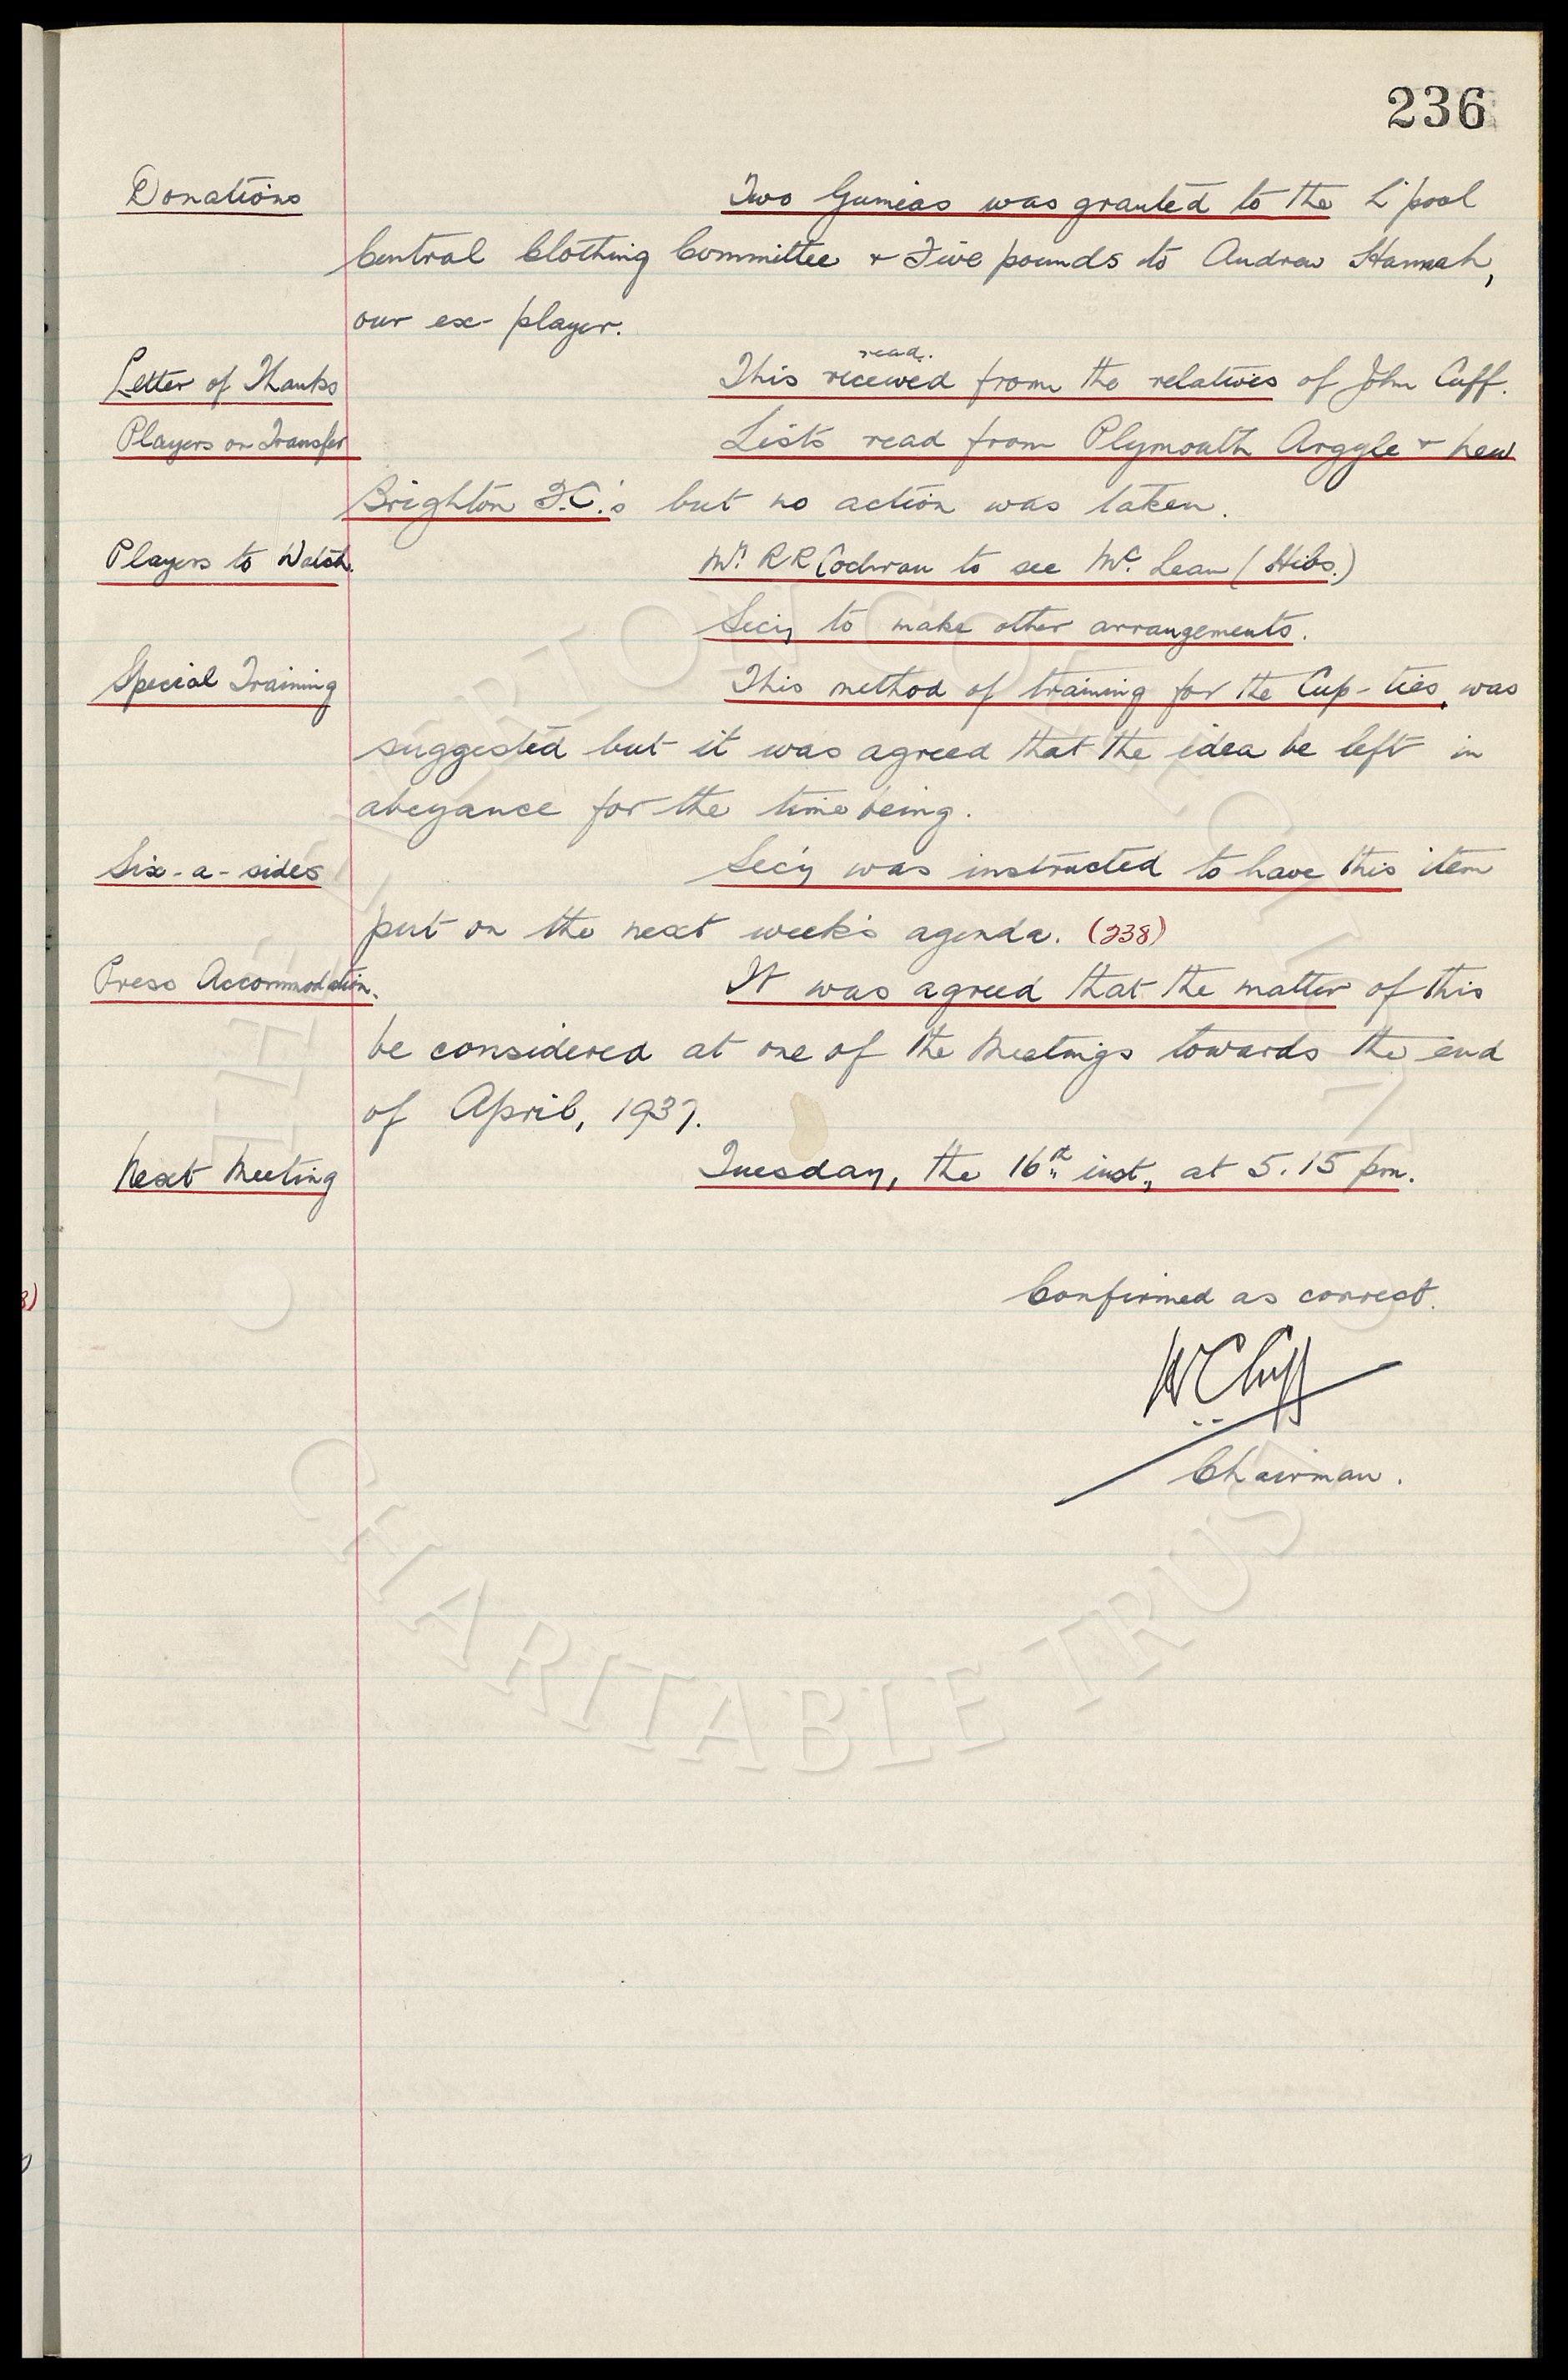 236
Donations Two Guineas was granted to the L'pool
Central Clothing Committee & Five pounds to Andrew Hannah,
our ex-player.
read.
Letter of Thanks This received from the relatives of John Cuff.
Players on Transfer Lists read from Plymouth Argyle & New
Brighton F.C.'s but no action was taken.
Players to Watch. Mr. R R Cochran to see Mc. Lean (Hibs.)
Sec'y to make other arrangements.
Special Training This method of training for the Cup-ties, was
suggested but it was agreed that the idea be left in
abeyance for the time being.
Six-a-sides Sec'y was instructed to have this item
put on the next week's agenda. (238)
Press Accommodation. It was agreed that the matter of this
be considered at one of the Meetings towards the end
of April, 1937.
Next Meeting Tuesday, the 16th inst., at 5.15 pm.
Confirmed as correct.
W C Cuff
Chairman.
THE EVERTON COLLECTION
CHARITABLE TRUST